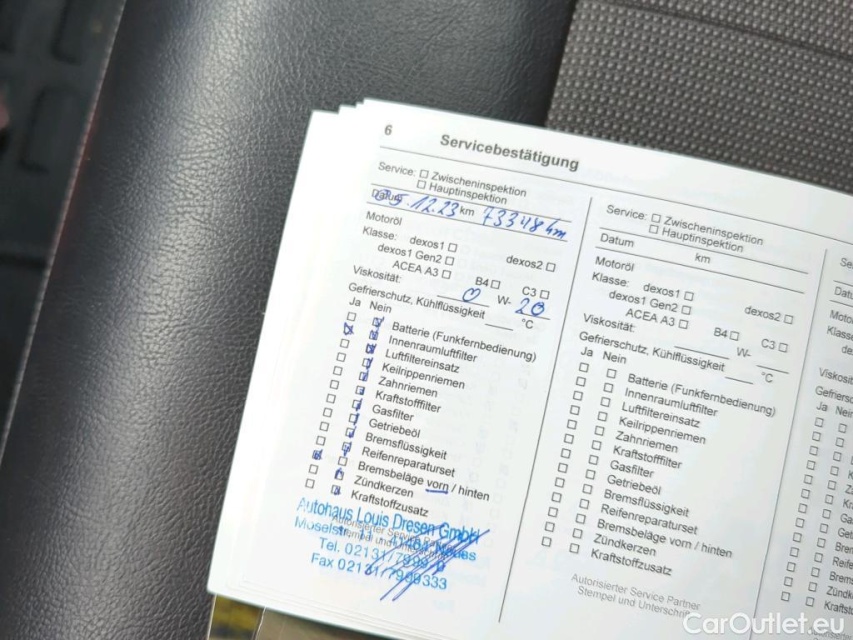 6
Servicebestätigung
Service: Zwischeninspektion
Hauptinspektion
Datum 05.12.23 km 73348 km
Motoröl
Klasse: dexos1 dexos2
dexos1 Gen2
ACEA A3 B4 C3
Viskosität: 0 W- 20
Gefrierschutz, Kühlflüssigkeit °C
Ja Nein
Batterie (Funkfernbedienung)
Innenraumluftfilter
Luftfiltereinsatz
Keilrippenriemen
Zahnriemen
Kraftstofffilter
Gasfilter
Getriebeöl
Bremsflüssigkeit
Reifenreparaturset
Bremsbeläge vorn / hinten
Zündkerzen
Kraftstoffzusatz
Autohaus Louis Dresen GmbH
Autorisierter Service Partner
Moselstr. 11 Neuss
Tel. 02131/7999
Fax 02131/7999333
Service: Zwischeninspektion
Hauptinspektion
Datum km
Motoröl
Klasse: dexos1 dexos2
dexos1 Gen2
ACEA A3 B4 C3
Viskosität: W-
Gefrierschutz, Kühlflüssigkeit °C
Ja Nein
Batterie (Funkfernbedienung)
Innenraumluftfilter
Luftfiltereinsatz
Keilrippenriemen
Zahnriemen
Kraftstofffilter
Gasfilter
Getriebeöl
Bremsflüssigkeit
Reifenreparaturset
Bremsbeläge vorn / hinten
Zündkerzen
Kraftstoffzusatz
Autorisierter Service Partner
Stempel und Unterschrift
Ja Nein
CarOutlet.eu